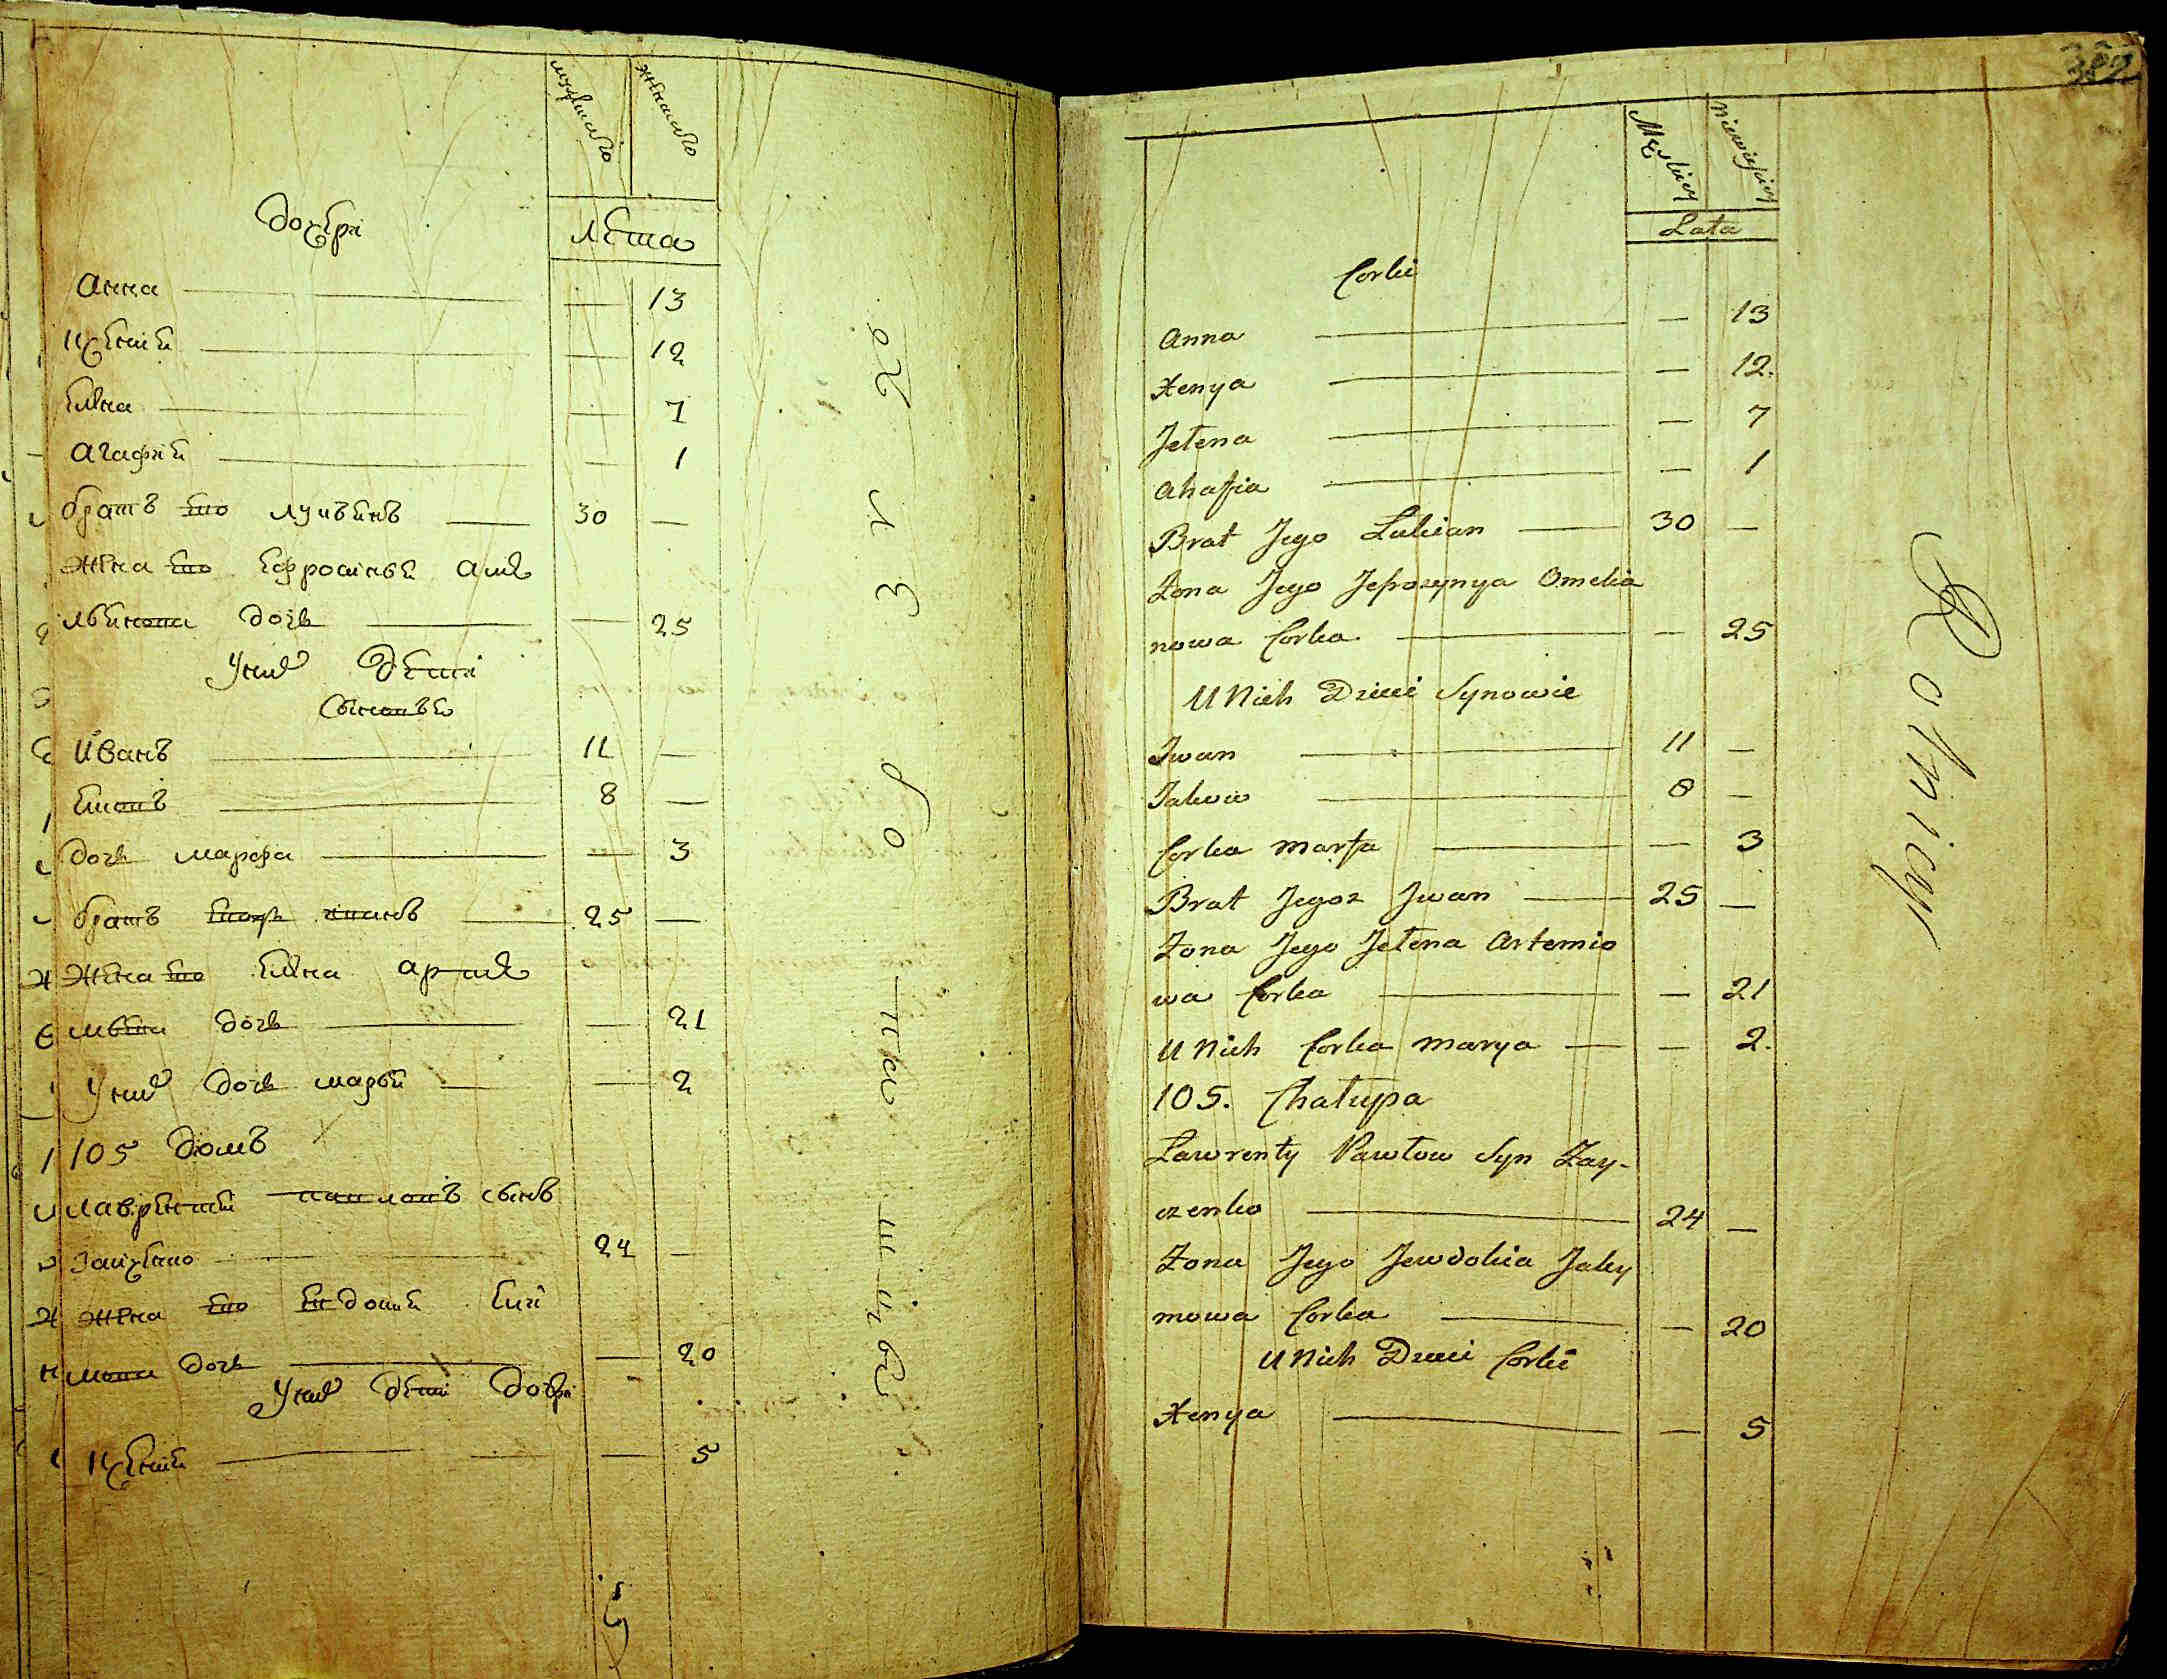 мужеска женска
дочери
лета
Анна — — 13
Ксения — — 12
Елена — — 7
Агафия — — 1
братъ его Лукъянъ — 30 —
жена его Ефросинья Омел
льянова дочь — — 25
У них дети
сыновья
Иванъ — 11 —
Яковъ — 8 —
дочь Марфа — — 3
братъ Иванъ — 25 —
жена его Елена Арте
мьева дочь — — 21
У них дочь Марья — — 2
105 домъ
Лаврентий Павловъ сынъ
Зайченко — 24 —
жена его Евдокия Яки
мова дочь — — 20
У них дети дочери
Ксения — — 5
Męskiey Niewieskiey
Lata
Corki
Anna — — 13
Xenya — — 12.
Jełena — — 7
Ahafia — — 1
Brat Jego Lukian — 30 —
Zona Jego Jefrozynya Omelia
nowa Corka — — 25
U Nich Dzieci Synowie
Jwan — 11 —
Jakow — 8 —
Corka Marfa — — 3
Brat Jegoz Jwan — 25 —
Zona Jego Jełena Artemio
wa Corka — — 21
U Nich Corka Marya — — 2.
105. Chałupa
Lawrenty Pawłow Syn Zay-
czenko — 24 —
Zona Jego Jewdokia Jaky
mowa Corka — — 20
U Nich Dzieci Corki
Xenya — — 5